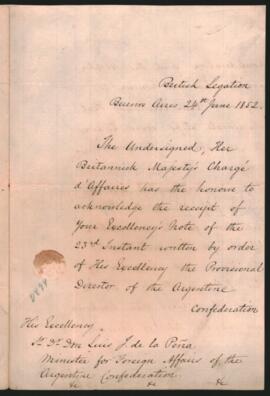 British Legation
Buenos Aires 24th June 1852.
The Undersigned, Her
Britannick Majesty's Chargé
d'Affaires has the honour to
acknowledge the receipt of
Your Excellency's Note of the
23rd Instant written by order
of His Excellency the Provisional
Director of the Argentine
Confederation
His Excellency
Sr. Dr. Don Luis J. de la Peña
Minister for Foreign Affairs of the
Argentine Confederation.
&c &c &c